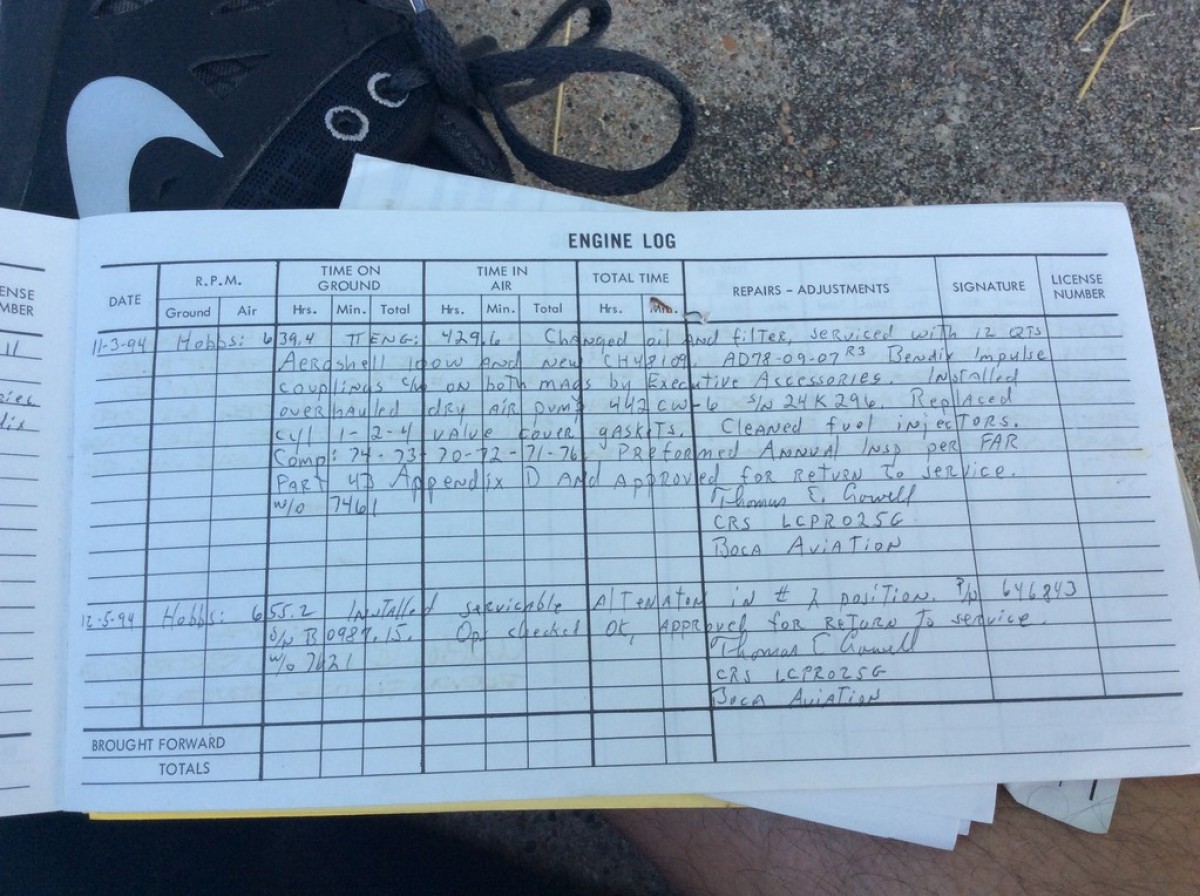 ENGINE LOG
ENSE
MBER
DATE
R.P.M.
Ground
Air
TIME ON
GROUND
Hrs.
Min.
Total
TIME IN
AIR
Hrs.
Min.
Total
TOTAL TIME
Hrs.
Min.
REPAIRS – ADJUSTMENTS
SIGNATURE
LICENSE
NUMBER
11-3-94 Hobbs: 639.4 TTENG: 429.6 Changed oil and filter, serviced with 12 QTS
Aeroshell 100W AND new CH48109. AD78-09-07 R3 Bendix Impulse
couplings c/w on both mags by Executive Accessories. Installed
overhauled dry air pump 442CW-6 S/N 24K296. Replaced
Cyl 1-2-4 valve cover gaskets. Cleaned fuel injectors.
Comp: 74-73-70-72-71-76 Preformed Annual Insp per FAR
Part 43 Appendix D AND Approved for Return to service.
W/O 7461
Thomas E. Gowell
CRS LCPR025G
Boca Aviation
12-5-94 Hobbs: 655.2 Installed servicable Alternator in # 2 position. P/N 646843
S/N B 0987.15. Ops checked OK, Approved for Return to service.
W/O 7621
Thomas E Gowell
CRS LCPR025G
Boca Aviation
BROUGHT FORWARD
TOTALS